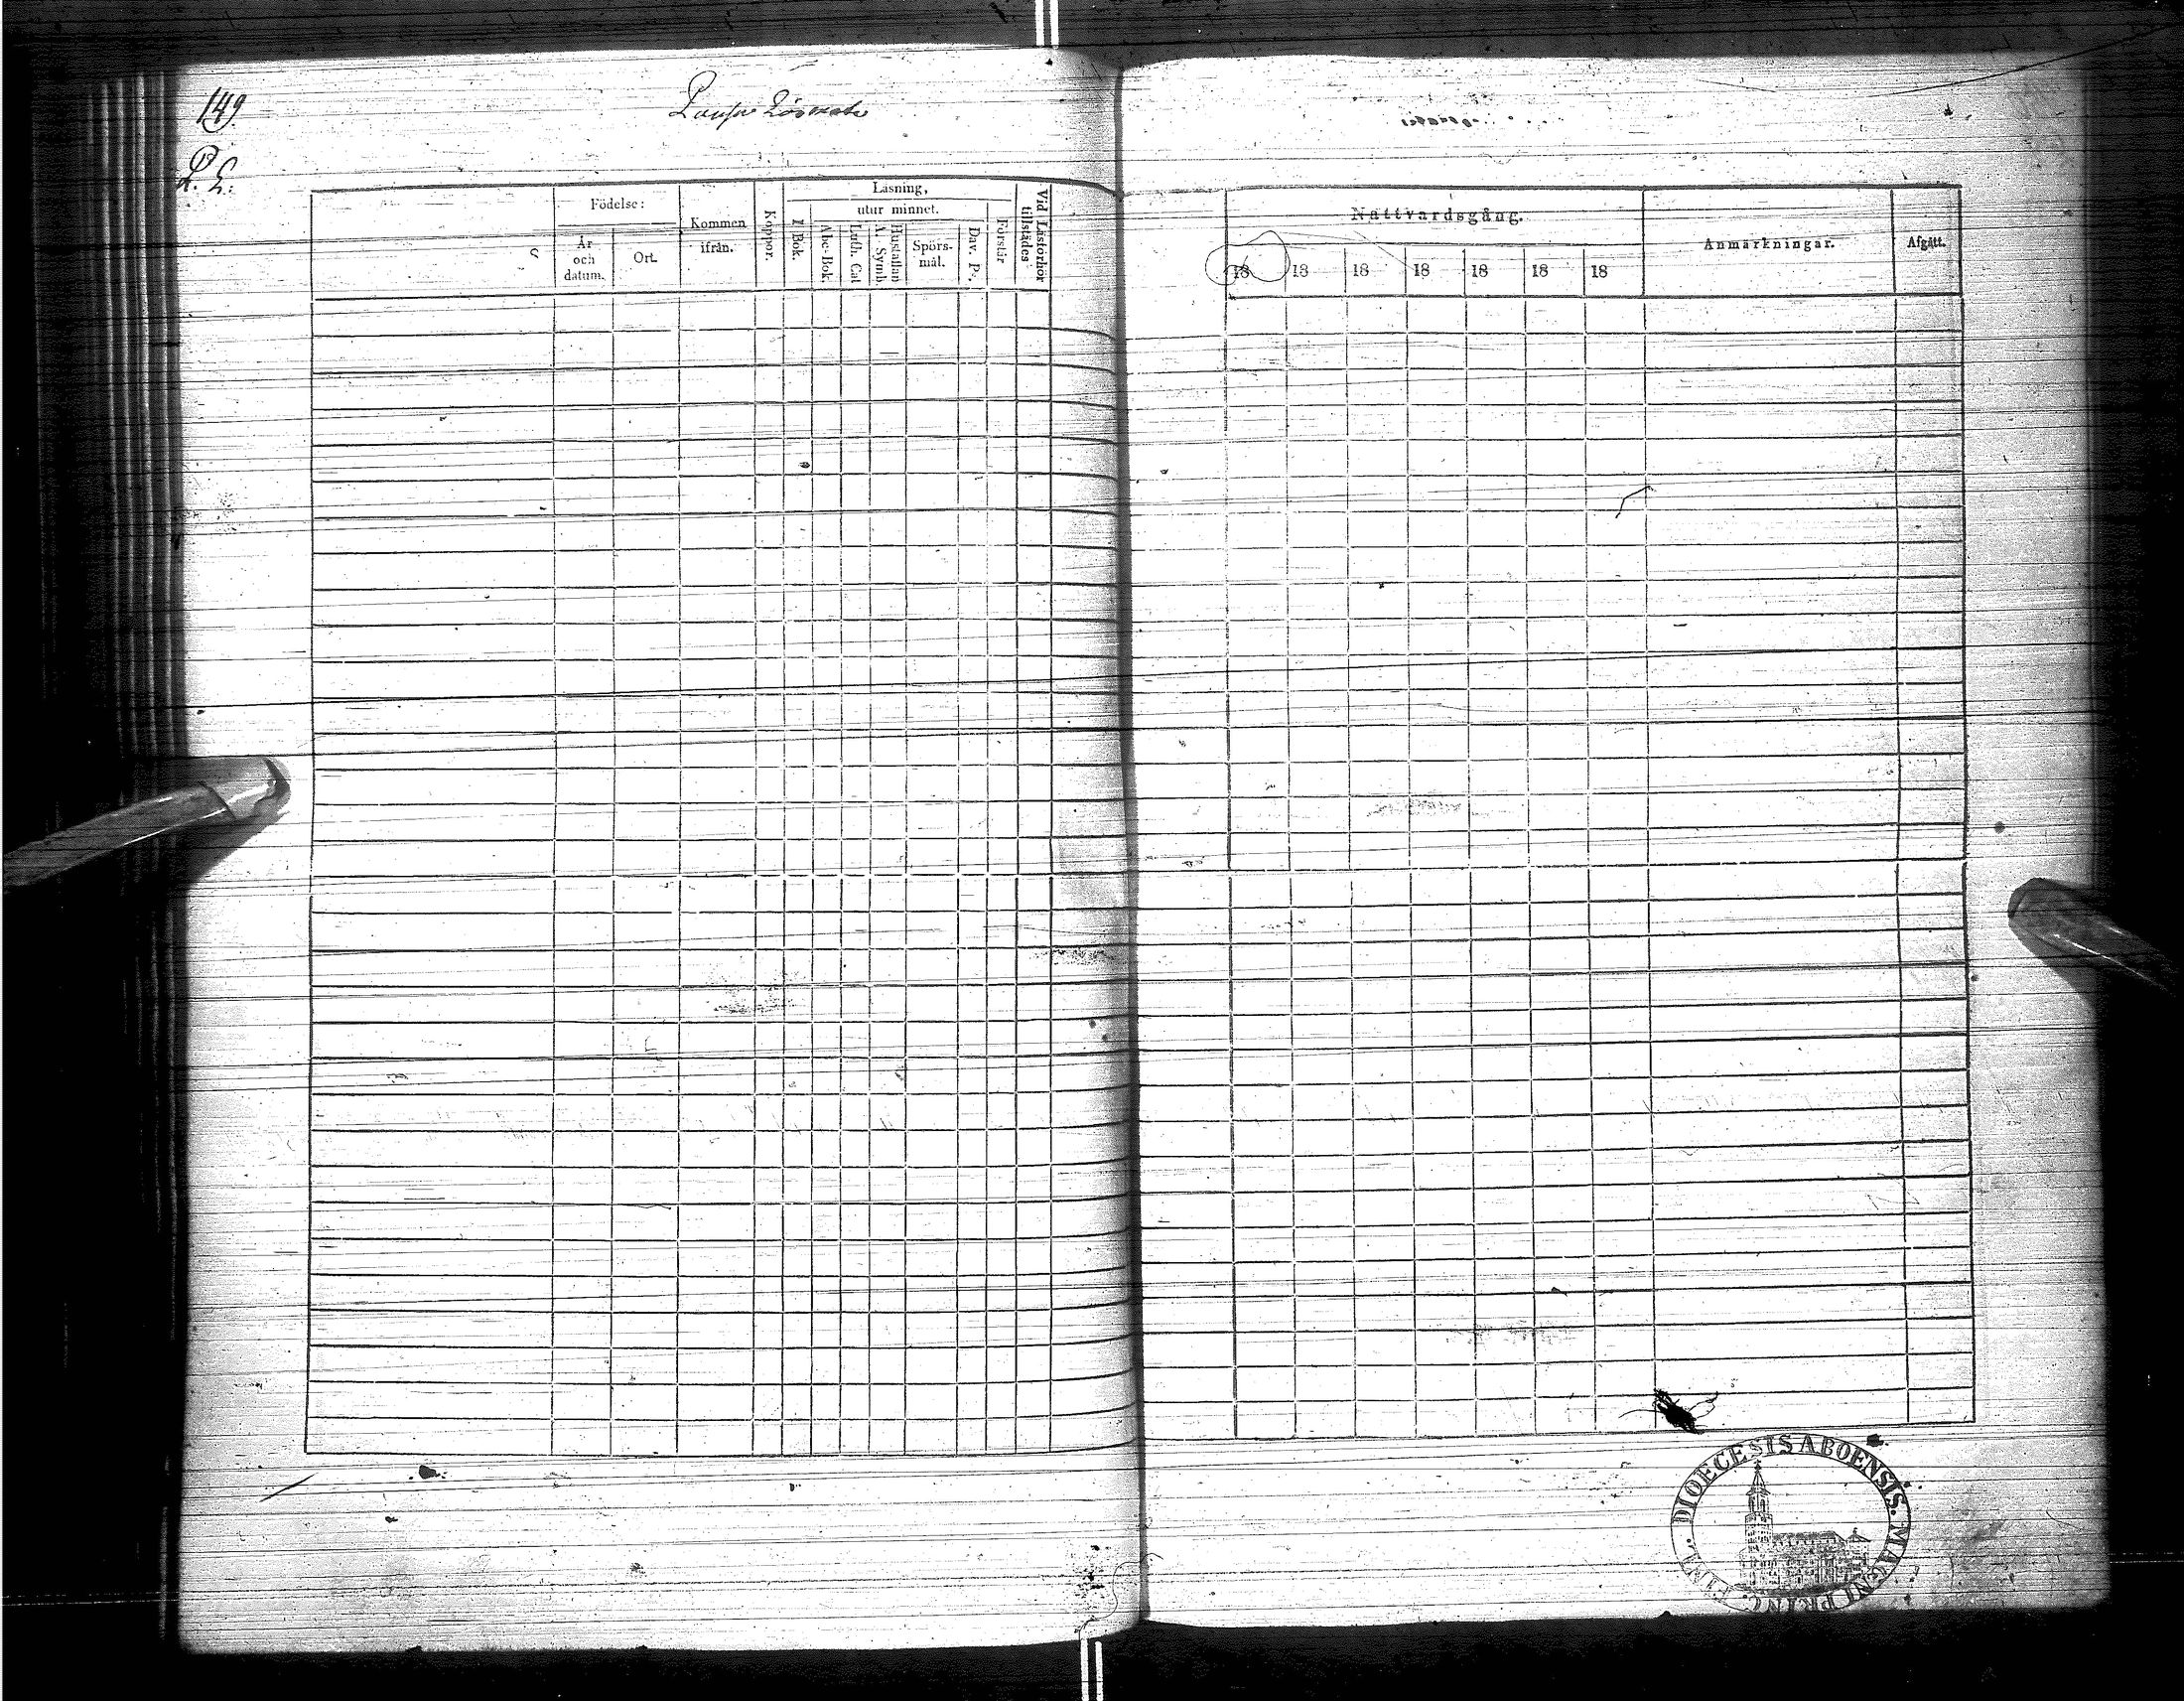 149.
P. L.
Födelse:
År och datum.
Ort.
Kommen ifrån.
Koppor.
Läsning,
I Bok.
utur minnet.
Abc-Bok.
Luth. Cat
Hustaflan A. Symb.
Spörs-mål.
Dav. Ps.
Förstår
Vid Läsförhör tillstädes
Nattvardsgång.
18 18 18 18 18 18 18
Anmärkningar.
Afgått.
DIOECESIS ABOENSIS. MAGNI PRINC. FINL.